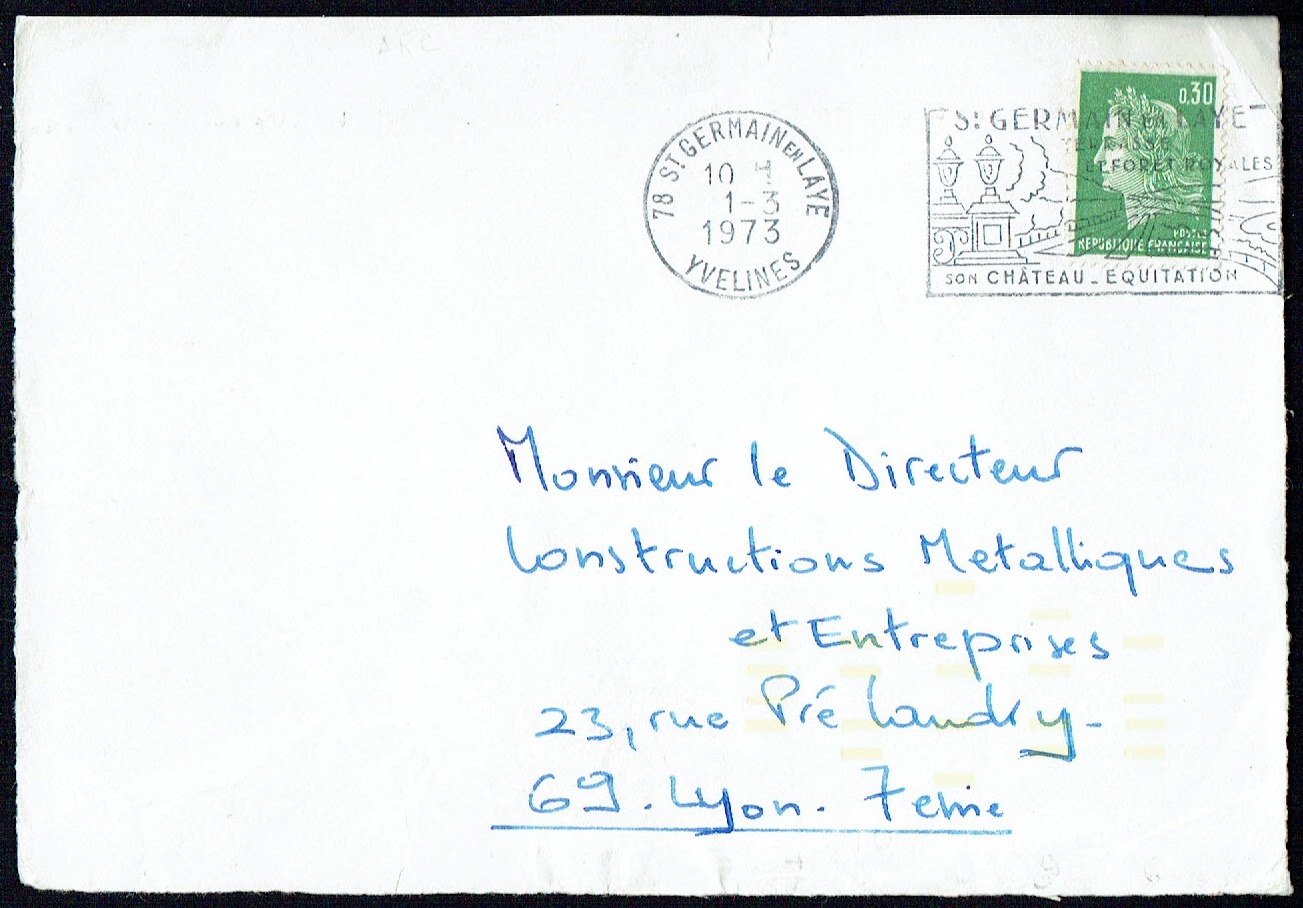 78 ST GERMAIN EN LAYE
10 H
1-3
1973
YVELINES
St GERMAIN en LAYE
TERRASSE
et FORET ROYALES
SON CHÂTEAU_EQUITATION
0,30
POSTES
REPUBLIQUE FRANÇAISE
Monsieur le Directeur
Constructions Metalliques
et Entreprises
23, rue Pré Gaudry-
69. Lyon. 7eme